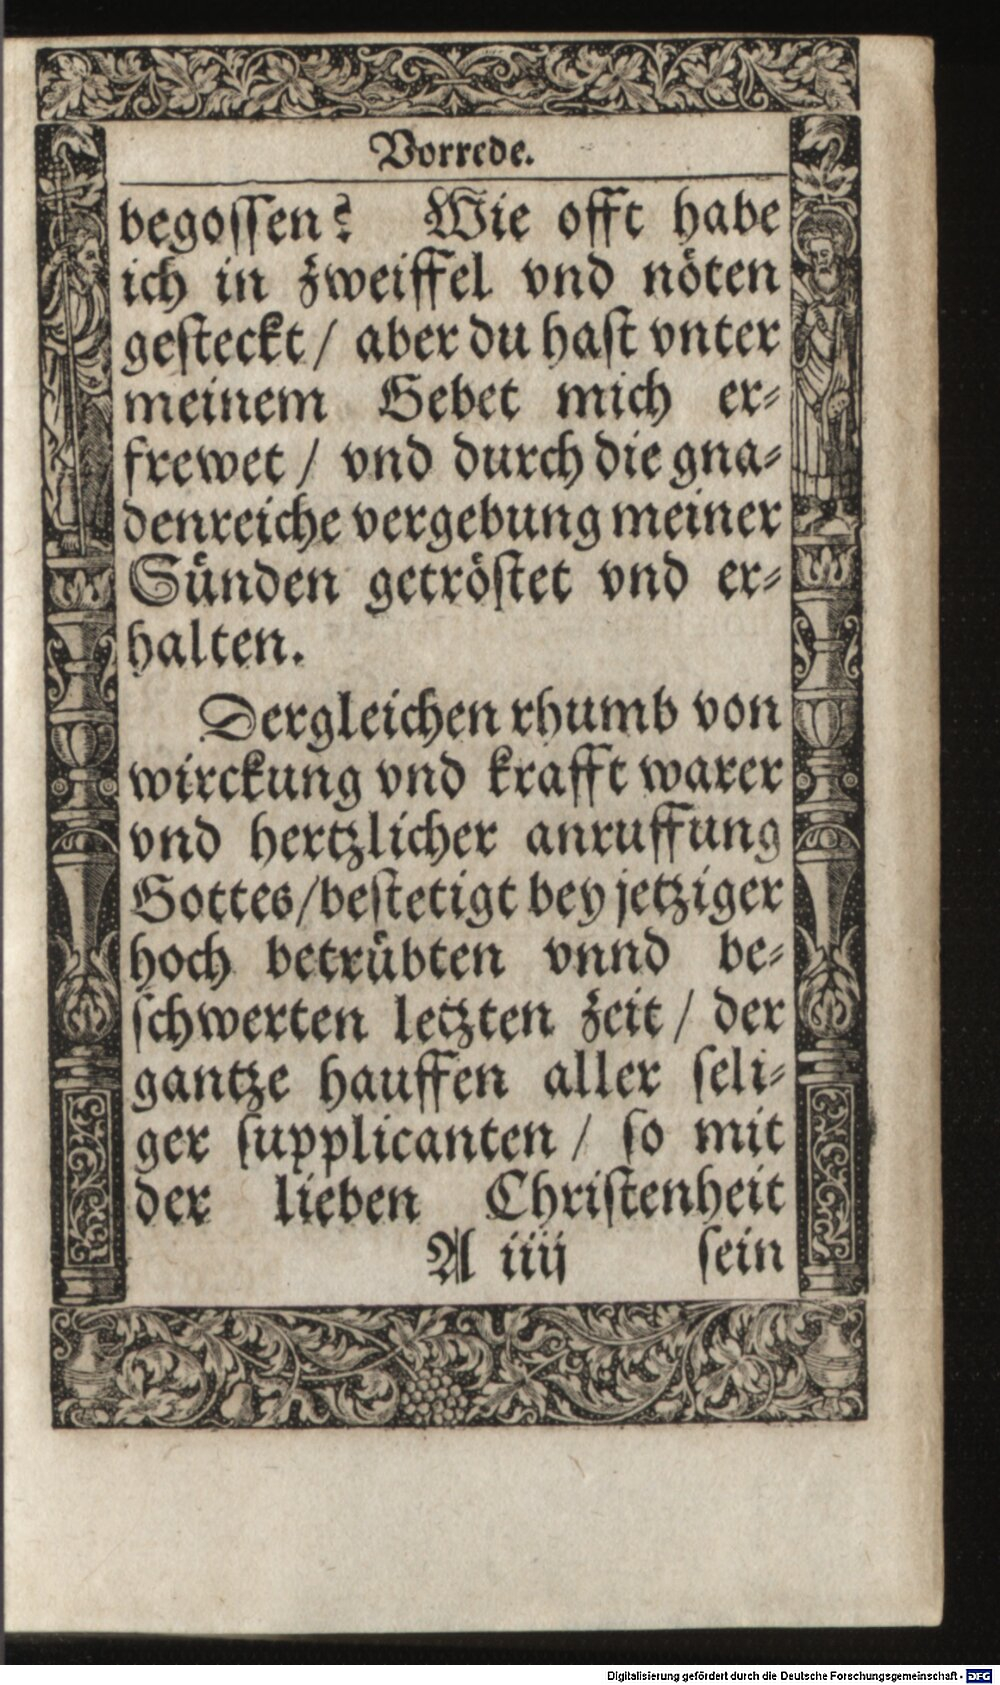 Vorrede.
begoſſen? Wie offt habe
ich in zweiffel vnd nöten
geſteckt / aber du haſt vnter
meinem Gebet mich er⸗
frewet / vnd durch die gna⸗
denreiche vergebung meiner
Sünden getröſtet vnd er⸗
halten.
Dergleichen rhumb von
wirckung vnd krafft warer
vnd hertzlicher anruffung
Gottes/beſtetigt bey jetziger
hoch betrübten vnnd be⸗
ſchwerten letzten zeit / der
gantze hauffen aller ſeli⸗
ger ſupplicanten / ſo mit
der lieben Chriſtenheit
A iiij ſein
Digitalisierung gefördert durch die Deutsche Forschungsgemeinschaft - DFG